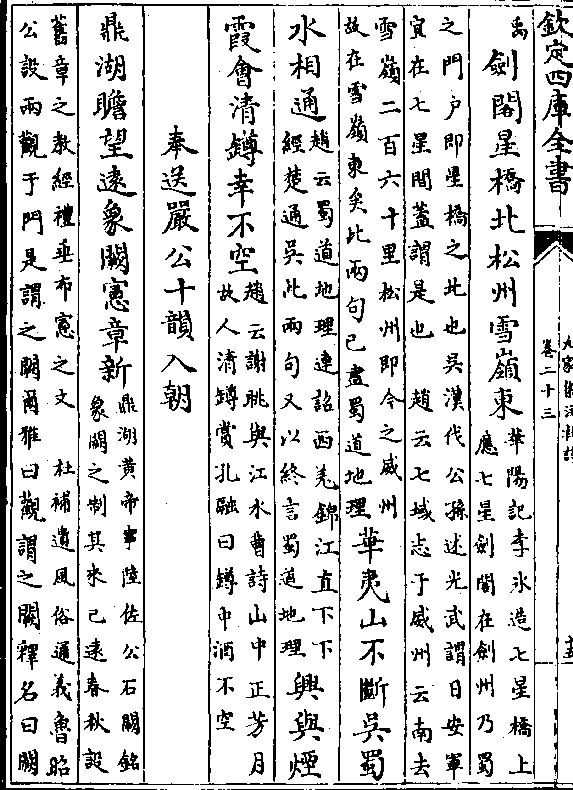 欽定四庫全書
卷二十三
禹
劒閣星橋北松州雪嶺東
華陽記李氷造七星橋上
應七星劒閣在劒州乃蜀
之門户即星橋之北也吳漢代公孫述光武謂曰安軍
宜在七星間蓋謂是也　趙云七域志于威州云南去
雪嶺二百六十里松州即今之威州
故在雪嶺東矣此兩句已盡蜀道地理
華夷山不斷吳蜀
水相通
趙云蜀道地理連諂西羌錦江直下下
經楚通吳此兩句又以終言蜀道地理
興與煙
霞會清鐏幸不空
趙云謝朓與江水曹詩山中正芳月
故人清鐏賞孔融曰鐏中酒不空
奉送嚴公十韻入朝
鼎湖瞻望遠象闕憲章新
鼎湖黄帝事陸佐公石闕銘
象闕之制其來已遠春秋設
舊章之教經禮垂布憲之文　杜補遺風俗通義魯昭
公設兩觀于門是謂之闕爾雅曰觀謂之闕釋名曰闕